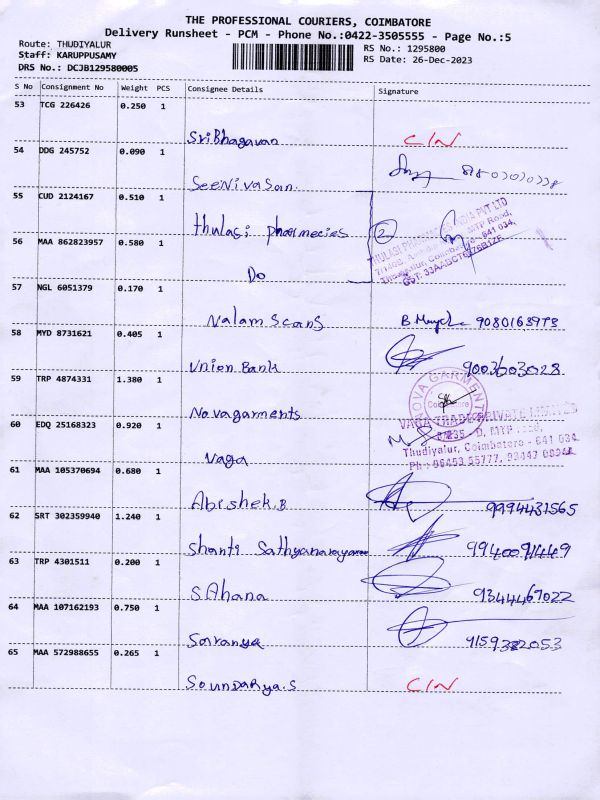 THE PROFESSIONAL COURIERS, COIMBATORE
Delivery Runsheet - PCM - Phone No.:0422-3505555 - Page No.:5
Route: THUDIYALUR
Staff: KARUPPUSAMY
DRS No.: DCJB129580005
RS No.: 1295800
RS Date: 26-Dec-2023
S No Consignment No Weight PCS Consignee Details Signature
53 TCG 226426 0.250 1
Sri Bhagavan C/N
54 DDG 245752 0.090 1
Seenivasan
55 CUD 2124167 0.510 1
Thulasi pharmecies 2
56 MAA 862823957 0.580 1
Do
57 NGL 6051379 0.170 1
Nalam scans 9080163973
58 MYD 8731621 0.405 1
Union Bank 9003603028
59 TRP 4874331 1.380 1
Novagarments
60 EDQ 25168323 0.920 1
Vaga
Thudiyalur, Coimbatore - 641 034.
61 MAA 105370694 0.680 1
Abishek.B 9994431565
62 SRT 302359940 1.240 1
Shanti Sathyanarayanan 9940091449
63 TRP 4301511 0.200 1
SAhana 9344467022
64 MAA 107162193 0.750 1
Saranya 9159382053
65 MAA 572988655 0.265 1
Soundarya.S C/N